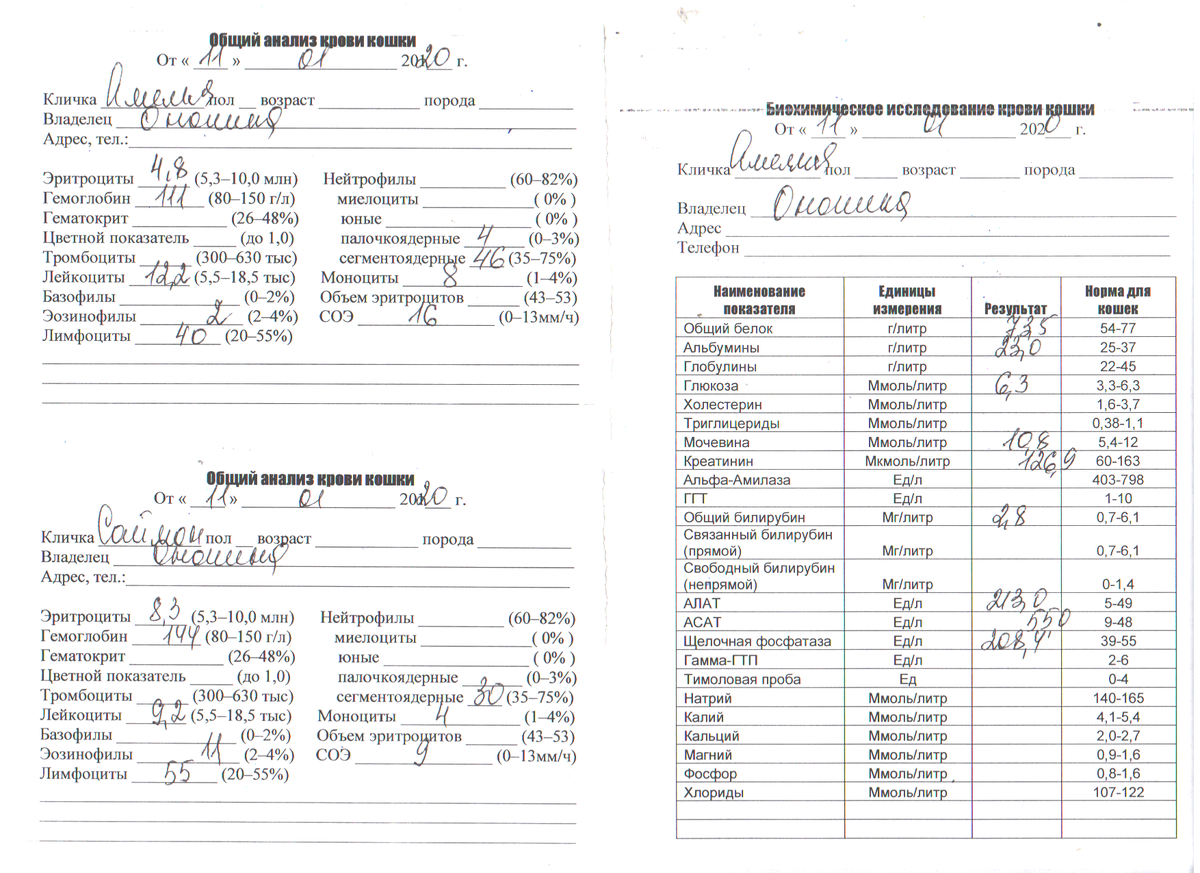 Общий анализ крови кошки
От « 11 » 01 2020 г.
Кличка Амелия пол возраст порода
Владелец Оношина
Адрес, тел.:
Эритроциты 4,8 (5,3–10,0 млн)
Гемоглобин 111 (80–150 г/л)
Гематокрит (26–48%)
Цветной показатель (до 1,0)
Тромбоциты (300–630 тыс)
Лейкоциты 12,2 (5,5–18,5 тыс)
Базофилы (0–2%)
Эозинофилы 2 (2–4%)
Лимфоциты 40 (20–55%)
Нейтрофилы (60–82%)
миелоциты ( 0% )
юные ( 0% )
палочкоядерные 4 (0–3%)
сегментоядерные 46 (35–75%)
Моноциты 8 (1–4%)
Объем эритроцитов (43–53)
СОЭ 16 (0–13мм/ч)
Общий анализ крови кошки
От « 11 » 01 2020 г.
Кличка Саймон пол возраст порода
Владелец Оношина
Адрес, тел.:
Эритроциты 8,3 (5,3–10,0 млн)
Гемоглобин 144 (80–150 г/л)
Гематокрит (26–48%)
Цветной показатель (до 1,0)
Тромбоциты (300–630 тыс)
Лейкоциты 9,2 (5,5–18,5 тыс)
Базофилы (0–2%)
Эозинофилы 11 (2–4%)
Лимфоциты 55 (20–55%)
Нейтрофилы (60–82%)
миелоциты ( 0% )
юные ( 0% )
палочкоядерные (0–3%)
сегментоядерные 30 (35–75%)
Моноциты 4 (1–4%)
Объем эритроцитов (43–53)
СОЭ 9 (0–13мм/ч)
Биохимическое исследование крови кошки
От « 11 » 01 2020 г.
Кличка Амелия пол возраст порода
Владелец Оношина
Адрес
Телефон
Наименование показателя Единицы измерения Результат Норма для кошек
Общий белок г/литр 73,5 54-77
Альбумины г/литр 23,0 25-37
Глобулины г/литр 22-45
Глюкоза Ммоль/литр 6,3 3,3-6,3
Холестерин Ммоль/литр 1,6-3,7
Триглицериды Ммоль/литр 0,38-1,1
Мочевина Ммоль/литр 10,8 5,4-12
Креатинин Мкмоль/литр 126,9 60-163
Альфа-Амилаза Ед/л 403-798
ГГТ Ед/л 1-10
Общий билирубин Мг/литр 2,8 0,7-6,1
Связанный билирубин
(прямой) Мг/литр 0,7-6,1
Свободный билирубин
(непрямой) Мг/литр 0-1,4
АЛАТ Ед/л 213,0 5-49
АСАТ Ед/л 550 9-48
Щелочная фосфатаза Ед/л 208,4 39-55
Гамма-ГТП Ед/л 2-6
Тимоловая проба Ед 0-4
Натрий Ммоль/литр 140-165
Калий Ммоль/литр 4,1-5,4
Кальций Ммоль/литр 2,0-2,7
Магний Ммоль/литр 0,9-1,6
Фосфор Ммоль/литр 0,8-1,6
Хлориды Ммоль/литр 107-122